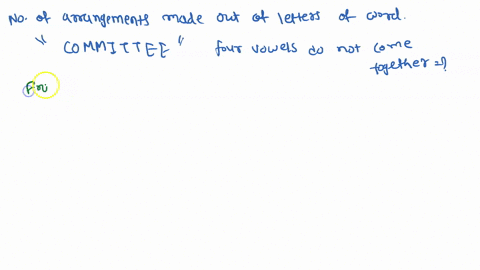 No. of arrangements made out of letters of word.
" COMMITTEE " four vowels do not come
together =?
Fri